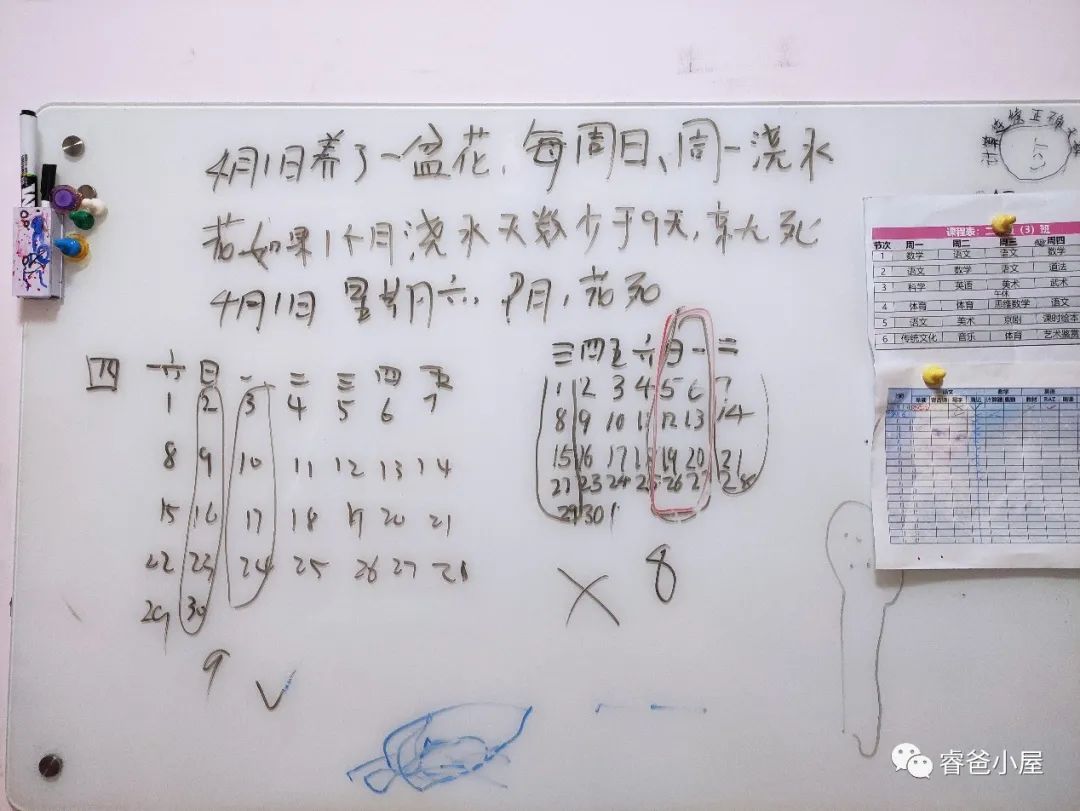 4月1日养了一盆花,每周日、周一浇水
花如果1个月浇水天数少于9天,就大死
4月1日 星期六,?月,花死
四
六 日 一 二 三 四 五
1 2 3 4 5 6 7
8 9 10 11 12 13 14
15 16 17 18 19 20 21
22 23 24 25 26 27 28
29 30
9
三 四 五 六 日 一 二
1 2 3 4 5 6 7
8 9 10 11 12 13 14
15 16 17 18 19 20 21
23 24 25 26 27 28
29 30
8
课程表:二 (3)班
节次 周一 周二 周三 周四
1 数学 语文 语文 数学
2 语文 数学 语文 道法
3 科学 英语 美术 武术
午休
4 体育 体育 思维数学 语文
5 语文 美术 京剧 课时绘本
6 传统文化 音乐 体育 艺术鉴赏
睿爸小屋